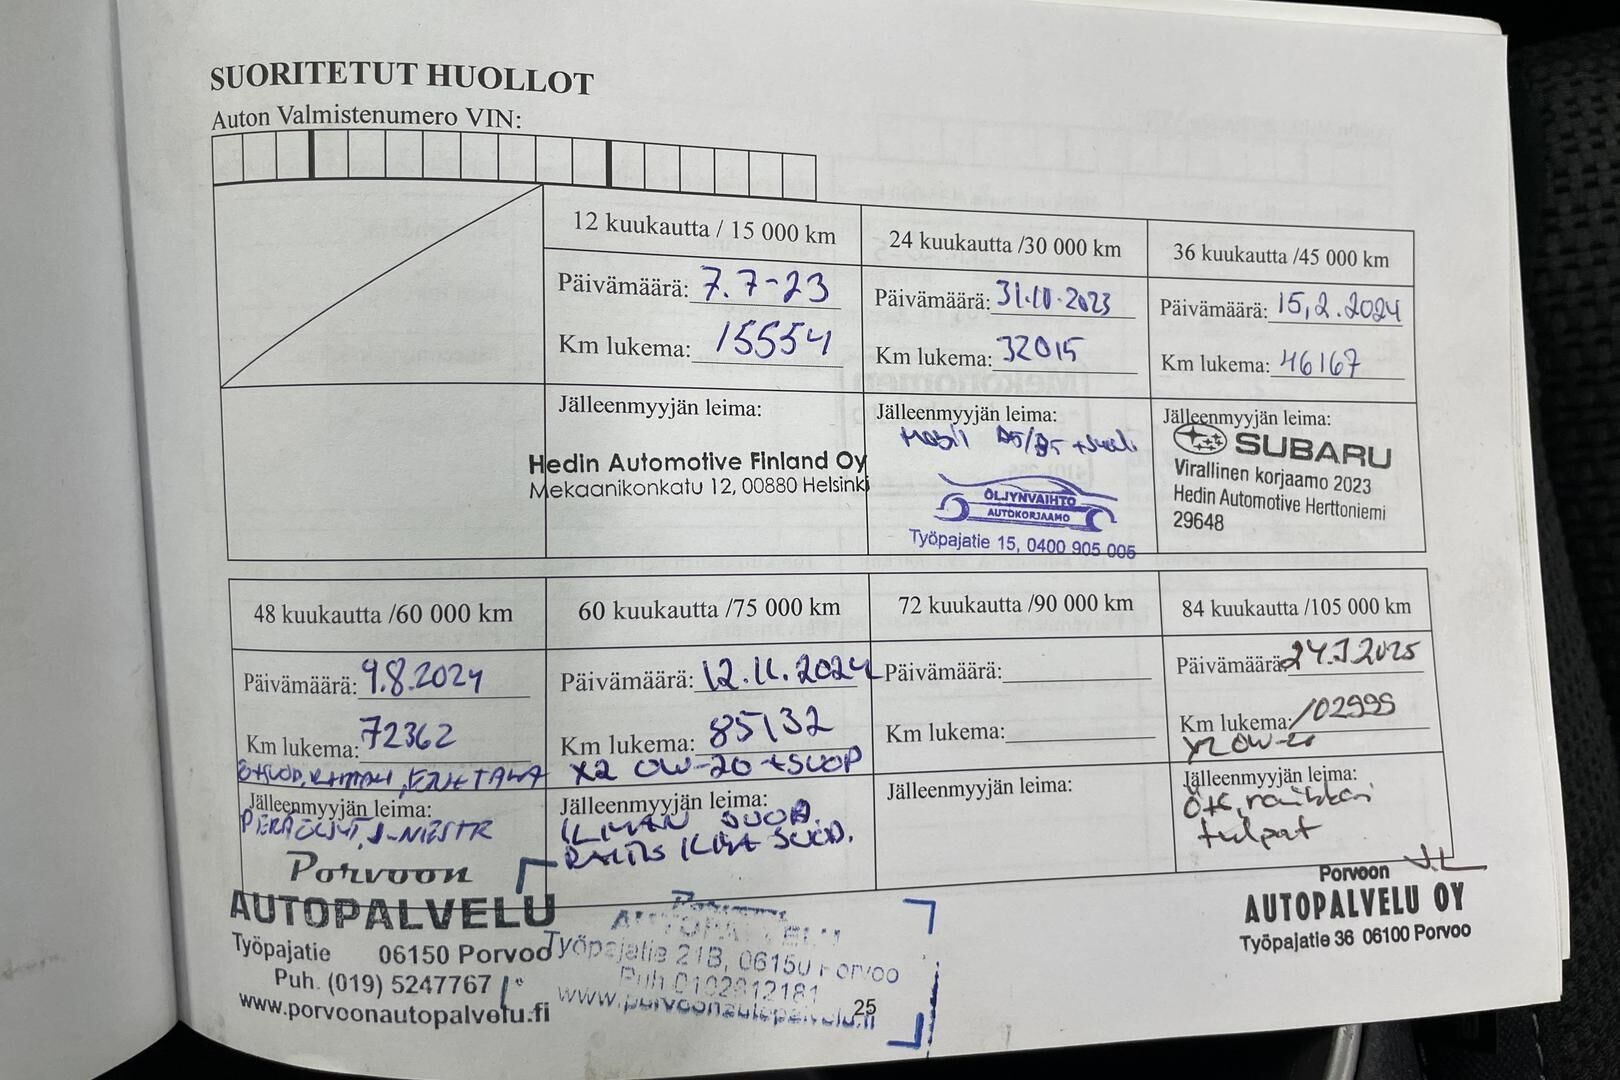 SUORITETUT HUOLLOT
Auton Valmistenumero VIN:
12 kuukautta / 15 000 km
Päivämäärä: 7.7-23
Km lukema: 15554
Jälleenmyyjän leima:
Hedin Automotive Finland Oy
Mekaanikonkatu 12, 00880 Helsinki
24 kuukautta /30 000 km
Päivämäärä: 31.10.2023
Km lukema: 32015
Jälleenmyyjän leima:
Mobil
ÖLJYNVAIHTO
AUTOKORJAAMO
Työpajatie 15, 0400 905 005
36 kuukautta /45 000 km
Päivämäärä: 15.2.2024
Km lukema: 46167
Jälleenmyyjän leima:
SUBARU
Virallinen korjaamo 2023
Hedin Automotive Herttoniemi
29648
48 kuukautta /60 000 km
Päivämäärä: 9.8.2024
Km lukema: 72362
Jälleenmyyjän leima:
Porvoon
AUTOPALVELU
Työpajatie 06150 Porvoo
Puh. (019) 5247767
www.porvoonautopalvelu.fi
60 kuukautta /75 000 km
Päivämäärä: 12.11.2024
Km lukema: 85132
X2 0W-20 +SUOD
Jälleenmyyjän leima:
ILMAN SUOD.
RAITIS ILMA SUOD.
Porvoon
AUTOPALVELU
Työpajatie 21B, 06150 Porvoo
Puh 0102812181
www.porvoonautopalvelu.fi
72 kuukautta /90 000 km
Päivämäärä:
Km lukema:
Jälleenmyyjän leima:
84 kuukautta /105 000 km
Päivämäärä: 2025
Km lukema: 102995
0W-20
Jälleenmyyjän leima:
Ö+S, raikkari
tulpat
Porvoon
AUTOPALVELU OY
Työpajatie 36 06100 Porvoo
25